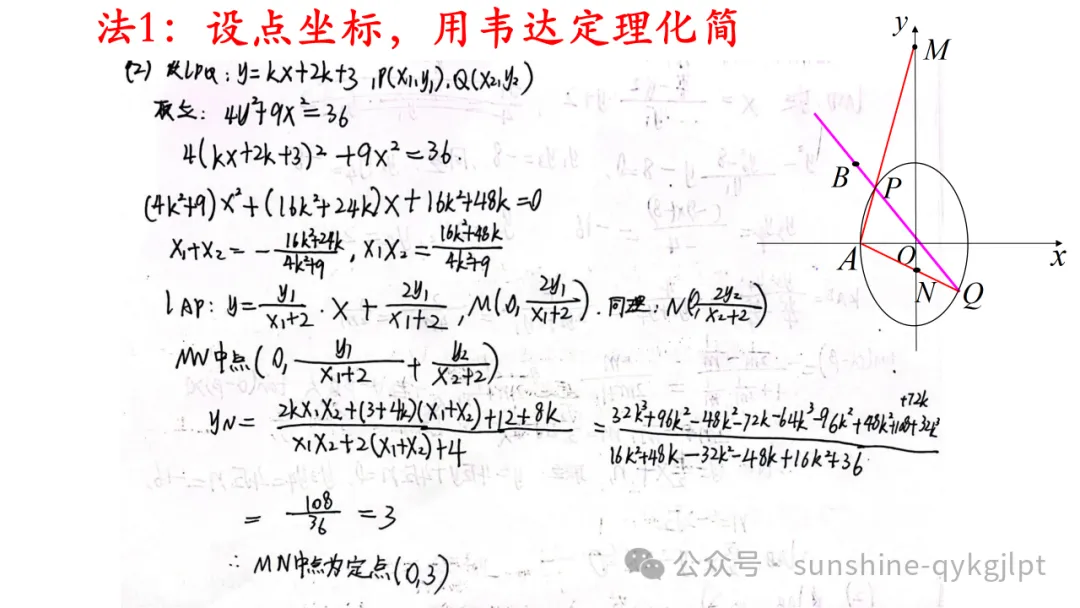 法1：设点坐标，用韦达定理化简
(2) 设lPQ：y=kx+2k+3，P(x₁,y₁)，Q(x₂,y₂)
联立：4y²+9x²=36
4(kx+2k+3)²+9x²=36.
(4k²+9)x²+(16k²+24k)x+16k²+48k=0
x₁+x₂=-\frac{16k²+24k}{4k²+9}，x₁x₂=\frac{16k²+48k}{4k²+9}
lAP：y=\frac{y₁}{x₁+2}·x+\frac{2y₁}{x₁+2}，M(0,\frac{2y₁}{x₁+2})．同理：N(0,\frac{2y₂}{x₂+2})
MN中点(0,\frac{y₁}{x₁+2}+\frac{y₂}{x₂+2})
yN=\frac{2kx₁x₂+(3+4k)(x₁+x₂)+12+8k}{x₁x₂+2(x₁+x₂)+4}=\frac{32k³+96k²-48k²-72k-64k³-96k²+48k²+108+32k³+72k}{16k²+48k-32k²-48k+16k²+36}
=\frac{108}{36}=3
∴MN中点为定点(0,3)
y
M
B
P
A
O
x
N
Q
公众号·sunshine-qykgjlpt